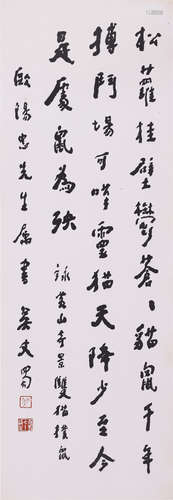 松蘿挂壁鬱蒼〻貓鼠千年
搏鬥場可靈猫天降少至今
是處鼠為殃 詠黃山奇景雙猫撲鼠
歐陽忠先生屬書 吳丈蜀